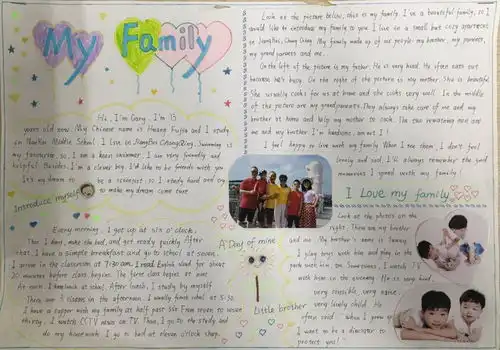 My Family
Hi, I'm Gary. I'm 13
years old now. My Chinese name is Huang Fujia and I study
in Nankai Middle School. I live in JiangBei ChongQing. Swimming is
my favourite so, I am a keen swimmer. I am very friendly and
helpful. Besides, I'm a clever boy. I'd like to be friends with you.
It's my dream to be a scientist, so I study hard and try
to make my dream come true.
Introduce myself
Every morning, I get up at six o'clock.
Then I dress, make the bed, and get ready quickly. After
that, I have a simple breakfast and go to school at seven.
I arrive in the classroom at 7:30 am. I read English what for about
30 minutes before class begins. The first class begins at nine.
At noon, I have lunch at school. After lunch, I study by myself.
There are 3 classes in the afternoon. I usually finish school at 5:30.
I have a supper with my family at half past six. From seven to seven
thirty, I watch CCTV news on TV. Then, I go to the study and
do my homework. I go to bed at eleven o'clock sharp.
A Day of mine
Look at the picture below, this is my family. I've a beautiful family, so I
would like to introduce my family to you. I live in a small but cozy apartment
in JiangBei, Chong Qing. My family made up of six people: my brother, my parents,
my grandparents and me.
On the left of the picture is my father. He is very kind. He often eats out
because he's busy. On the right of the picture is my mother. She is beautiful.
She usually cooks for us at home and she cooks very well. In the middle
of the picture are my grandparents. They always take care of me and my
brother at home and help my mother to cook. The two remaining men are
me and my brother. I'm handsome, am not I!
I feel happy to live with my family. When I see them, I don't feel
lonely and sad. I'll always remember the good
memories I spend with my family!
I Love my family
Look at the photos on the
right. These are my brother
and me. My brother's name is Jimmy.
I play toys with him and play in the
park with him, too. Sometimes, I watch TV
with him in the evening. He is very kind,
very sensible, very naive
very lovely child. He
often said "when I grow up
I want to be a director to
protect you!"
Little brother